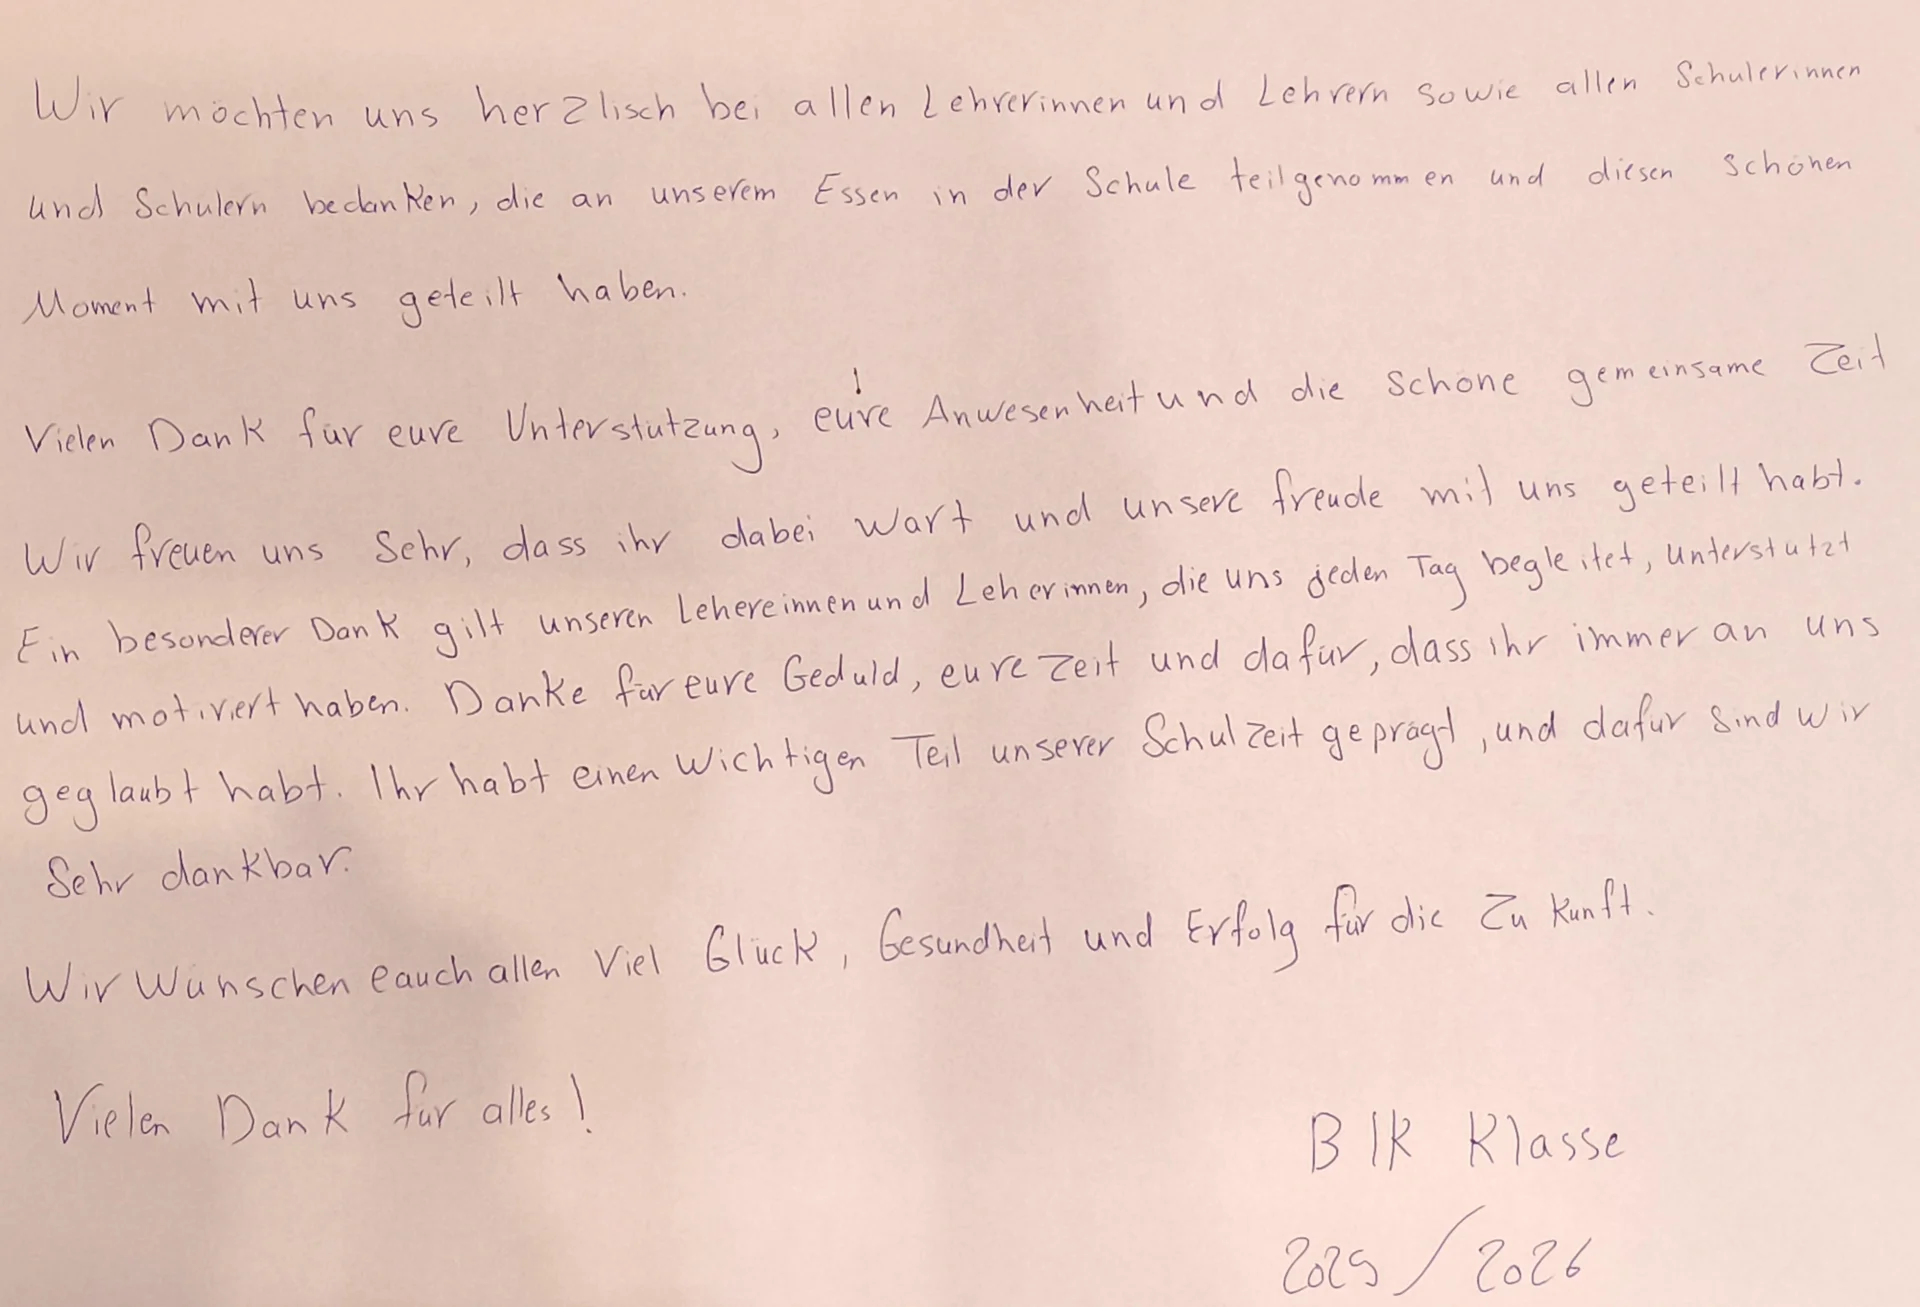 Wir möchten uns herzlisch bei allen Lehrerinnen und Lehrern sowie allen Schulerinnen
und Schulern bedanken, die an unserem Essen in der Schule teilgenommen und diesen Schönen
Moment mit uns geteilt haben.
Vielen Dank für eure Unterstutzung, eure Anwesenheit und die Schöne gemeinsame Zeit
Wir freuen uns Sehr, dass ihr dabei wart und unsere freude mit uns geteilt habt.
Ein besonderer Dank gilt unseren Lehereinnen und Leherinnen, die uns jeden Tag begleitet, unterstutzt
und motiviert haben. Danke für eure Geduld, eure Zeit und dafür, dass ihr immer an uns
geglaubt habt. Ihr habt einen Wichtigen Teil unserer Schulzeit geprägt, und dafür Sind wir
Sehr dankbar.
Wir Wünschen eauch allen Viel Glück, Gesundheit und Erfolg für die Zukunft.
Vielen Dank für alles!
BIK Klasse
2025/2026